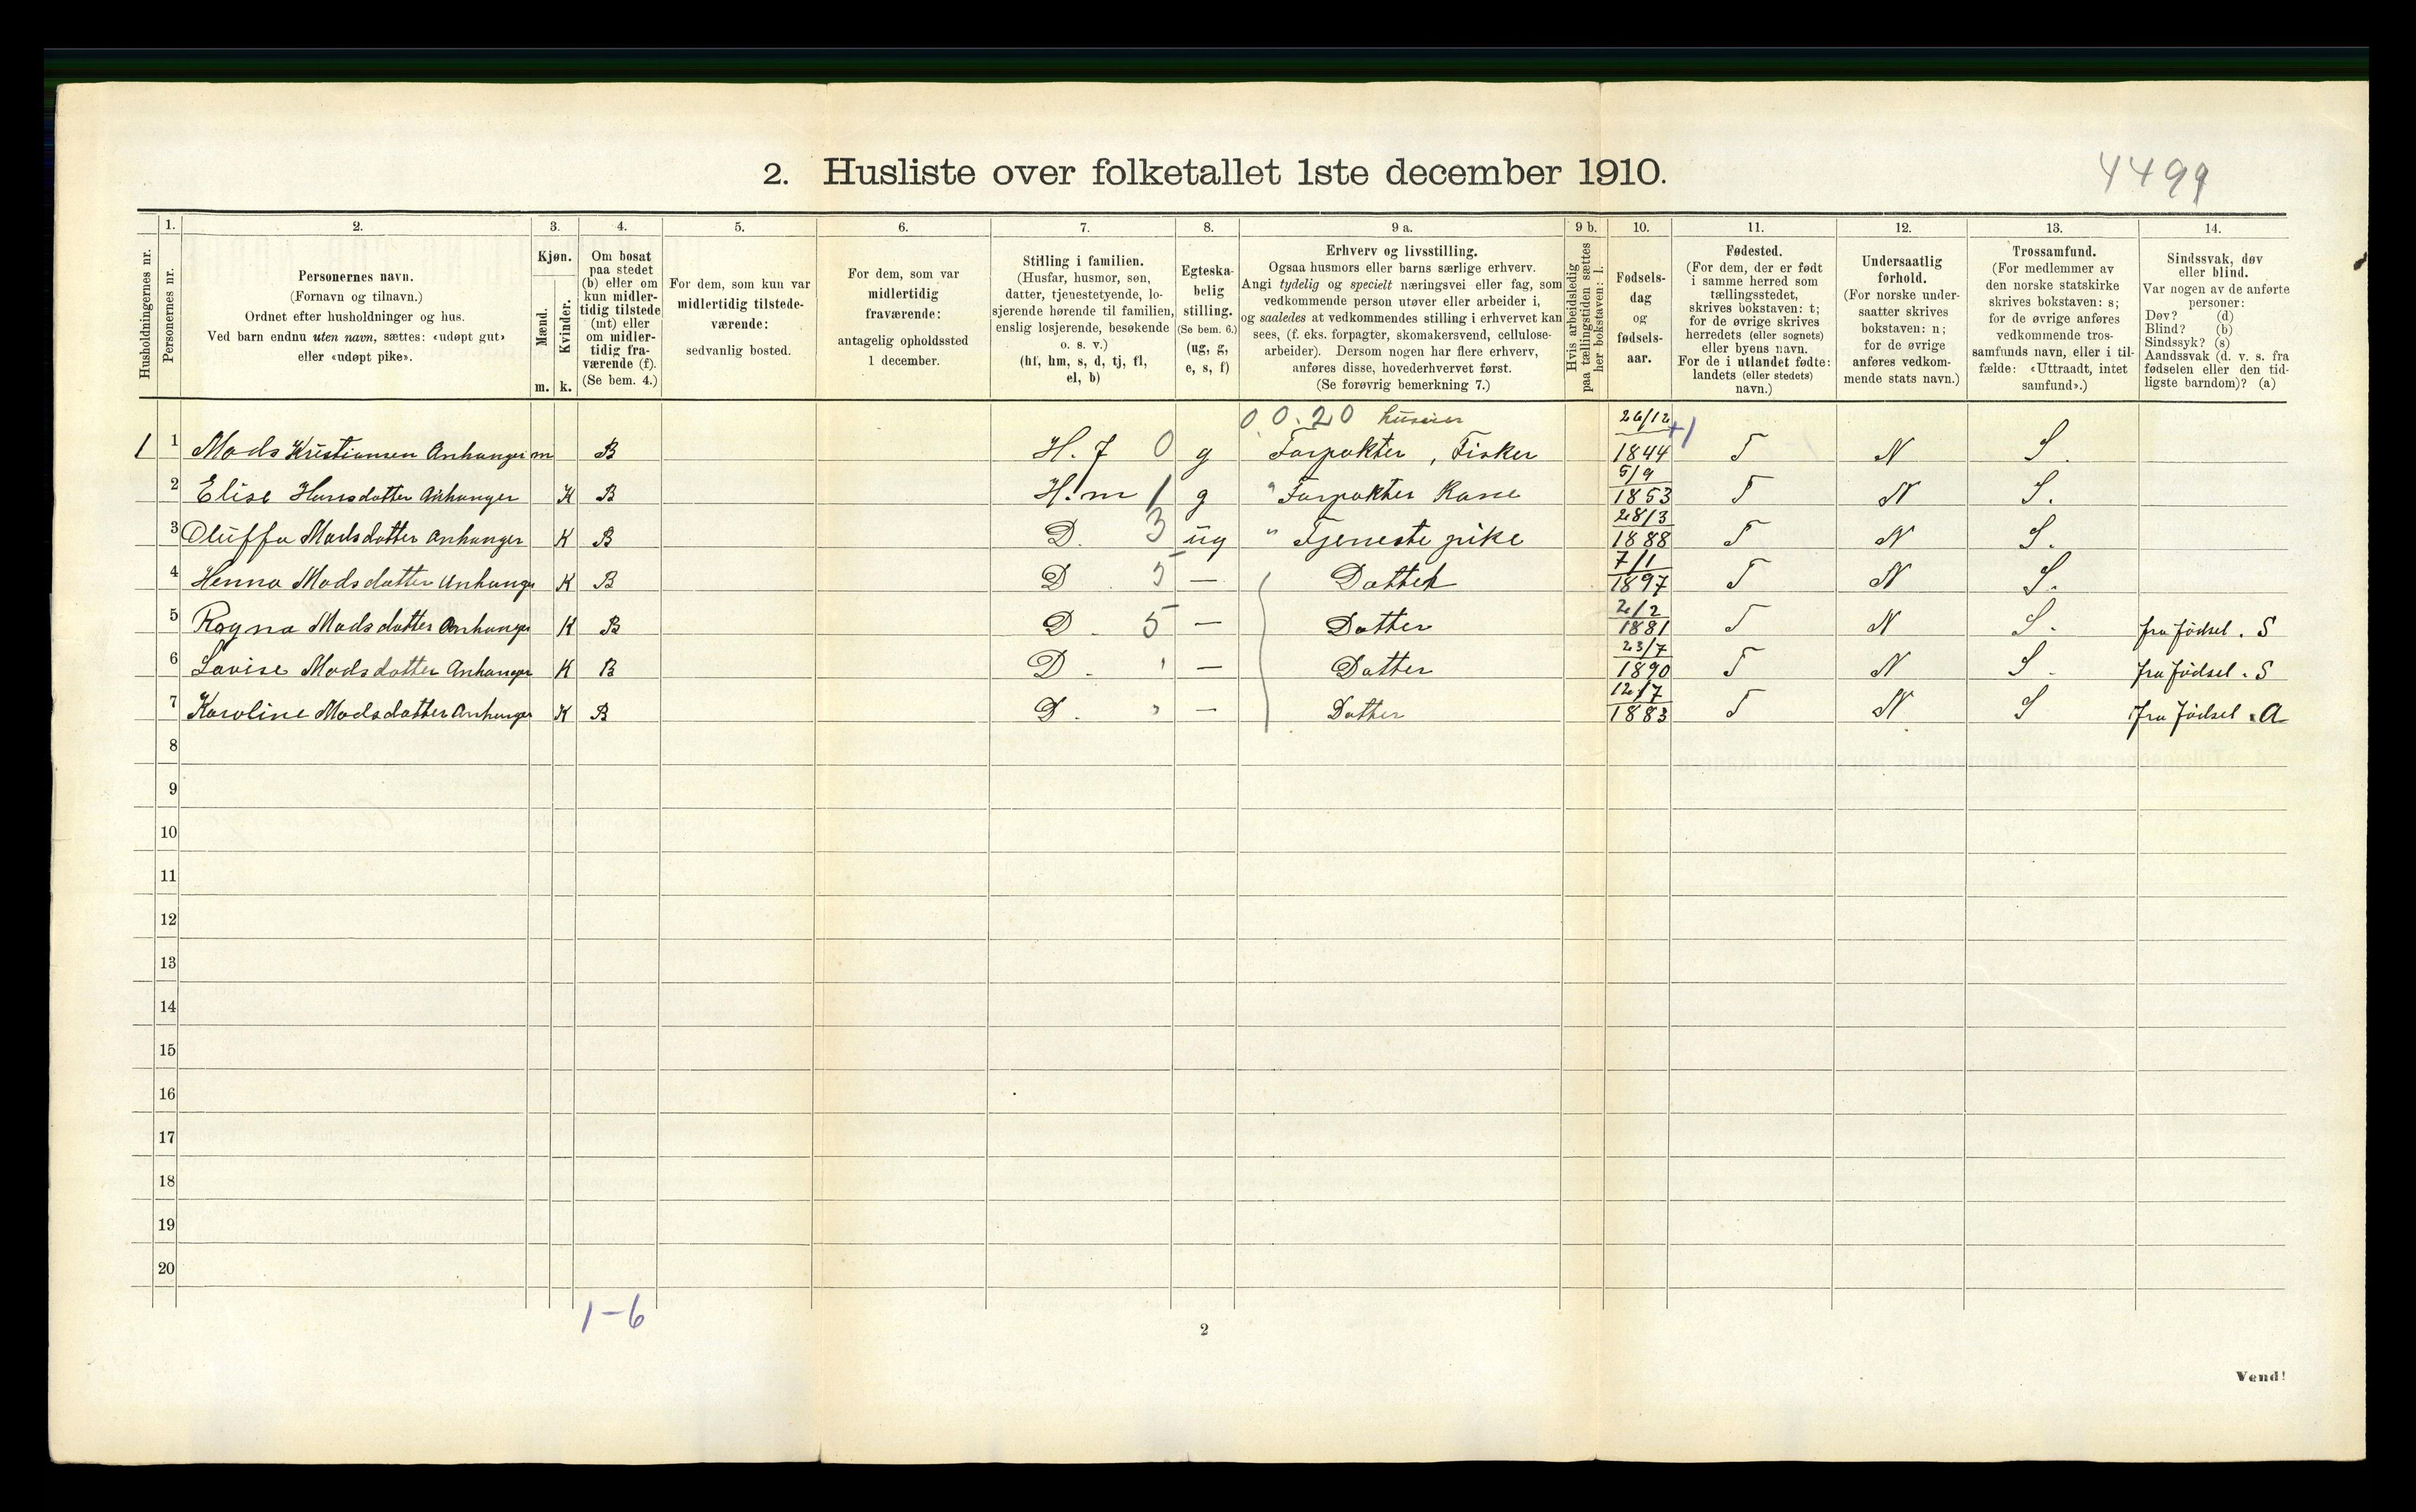 2. Husliste over folketallet 1ste december 1910.
4499
Husholdningernes nr.
1.
Personernes nr.
2.
Personernes navn.
(Fornavn og tilnavn.)
Ordnet efter husholdninger og hus.
Ved barn endnu uten navn, sættes: «udøpt gut»
eller «udøpt pike».
3.
Kjøn.
Mænd.
Kvinder.
m. k.
4.
Om bosat
paa stedet
(b) eller om
kun midler-
tidig tilstede
(mt) eller
om midler-
tidig fra-
værende (f).
(Se bem. 4.)
5.
For dem, som kun var
midlertidig tilstede-
værende:
sedvanlig bosted.
6.
For dem, som var
midlertidig
fraværende:
antagelig opholdssted
1 december.
7.
Stilling i familien.
(Husfar, husmor, søn,
datter, tjenestetyende, lo-
sjerende hørende til familien,
enslig losjerende, besøkende
o. s. v.)
(hf, hm, s, d, tj, fl,
el, b)
8.
Egteska-
belig
stilling.
(Se bem. 6.)
(ug, g,
e, s, f)
9 a.
Erhverv og livsstilling.
Ogsaa husmors eller barns særlige erhverv.
Angi tydelig og specielt næringsvei eller fag, som
vedkommende person utøver eller arbeider i,
og saaledes at vedkommendes stilling i erhvervet kan
sees, (f. eks. forpagter, skomakersvend, cellulose-
arbeider). Dersom nogen har flere erhverv,
anføres disse, hovederhvervet først.
(Se forøvrig bemerkning 7.)
9 b.
Hvis arbeidsledig
paa tællingstiden sættes
her bokstaven: l.
10.
Fødsels-
dag
og
fødsels-
aar.
11.
Fødested.
(For dem, der er født
i samme herred som
tællingsstedet,
skrives bokstaven: t;
for de øvrige skrives
herredets (eller sognets)
eller byens navn.
For de i utlandet fødte:
landets (eller stedets)
navn.)
12.
Undersaatlig
forhold.
(For norske under-
saatter skrives
bokstaven: n;
for de øvrige
anføres vedkom-
mende stats navn.)
13.
Trossamfund.
(For medlemmer av
den norske statskirke
skrives bokstaven: s;
for de øvrige anføres
vedkommende tros-
samfunds navn, eller i til-
fælde: «Uttraadt, intet
samfund».)
14.
Sindssvak, døv
eller blind.
Var nogen av de anførte
personer:
Døv? (d)
Blind? (b)
Sindssyk? (s)
Aandssvak (d. v. s. fra
fødselen eller den tid-
ligste barndom)? (a)
0.0.20 huseier 26/12 +1
1 1 Mads Kristiansen Anhanger m B H.f 0 g Forpakter, Fisker 1844 T N S.
2 Elise Hansdatter Anhanger K B H.m 1 g " Forpakter Kone 5/9 1853 T N S.
3 Oluffa Madsdatter Anhanger K B D. 3 ug " Tjeneste pike 28/3 1888 T N S.
4 Henna Madsdatter Anhanger K B D. 5 — Datter 7/1 1897 T N S.
5 Ragna Madsdatter Anhanger K B D. 5 — Datter 2/2 1881 T N S. fra fødsel. S
6 Lovise Madsdatter Anhanger K B D. " — Datter 23/7 1890 T N S. fra fødsel. S
7 Karoline Madsdatter Anhanger K B D. " — Datter 12/7 1883 T N S fra fødsel. A
8
9
10
11
12
13
14
15
16
17
18
19
20
1-6
2
Vend!